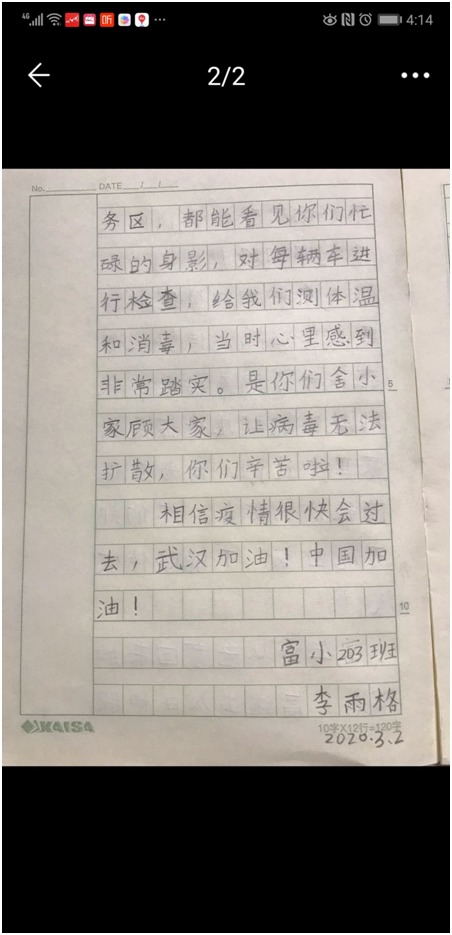 4G 4:14
2/2
No. DATE / /
务区，都能看见你们忙
碌的身影，对每辆车进
行检查，给我们测体温
和消毒，当时心里感到
非常踏实。是你们舍小
5
家顾大家，让病毒无法
扩散，你们辛苦啦！
相信疫情很快会过
去，武汉加油！中国加
油！
10
富小203班
李雨格
KAISA 10字X12行=120字
2020.3.2